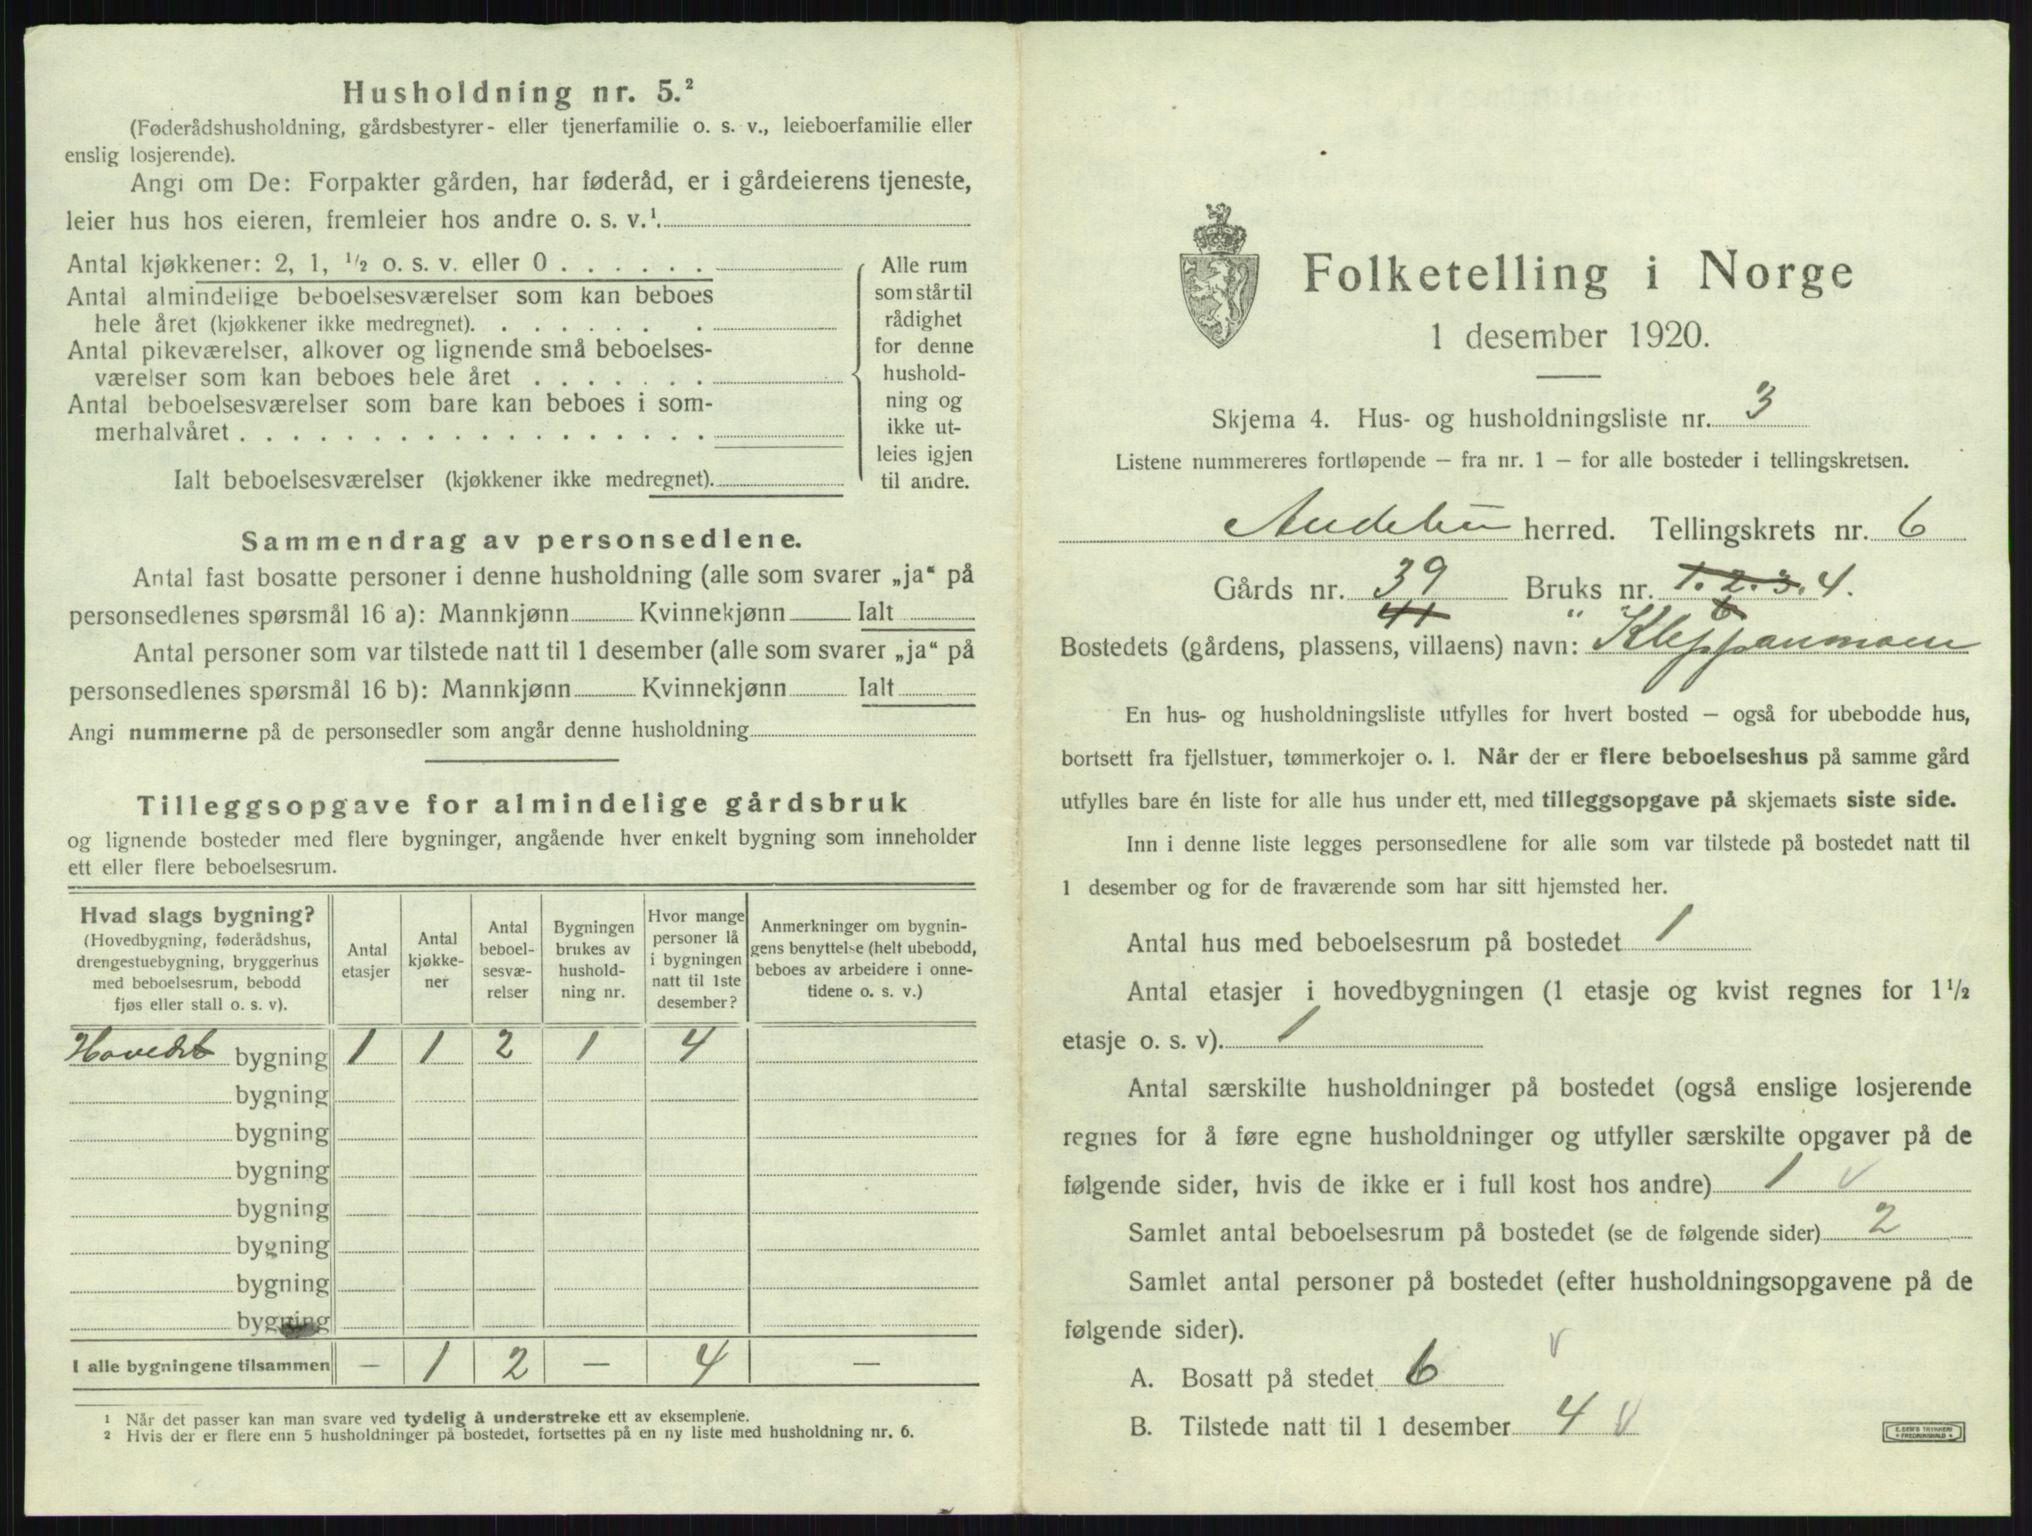 Husholdning nr. 5.²
(Føderådshusholdning, gårdsbestyrer- eller tjenerfamilie o. s. v., leieboerfamilie eller
enslig losjerende).
Angi om De: Forpakter gården, har føderåd, er i gårdeierens tjeneste,
leier hus hos eieren, fremleier hos andre o. s. v.¹.
Antal kjøkkener: 2, 1, ½ o. s. v. eller 0 . . . . . .
Antal almindelige beboelsesværelser som kan beboes
hele året (kjøkkener ikke medregnet). . . . . . . .
Antal pikeværelser, alkover og lignende små beboelses-
værelser som kan beboes hele året . . . . . . .
Antal beboelsesværelser som bare kan beboes i som-
merhalvåret . . . . . . . . . . . . . . . . . .
Ialt beboelsesværelser (kjøkkener ikke medregnet).
Alle rum
som står til
rådighet
for denne
hushold-
ning og
ikke ut-
leies igjen
til andre.
Sammendrag av personsedlene.
Antal fast bosatte personer i denne husholdning (alle som svarer „ja“ på
personsedlenes spørsmål 16 a): Mannkjønn Kvinnekjønn Ialt
Antal personer som var tilstede natt til 1 desember (alle som svarer „ja“ på
personsedlenes spørsmål 16 b): Mannkjønn Kvinnekjønn Ialt
Angi nummerne på de personsedler som angår denne husholdning
Tilleggsopgave for almindelige gårdsbruk
og lignende bosteder med flere bygninger, angående hver enkelt bygning som inneholder
ett eller flere beboelsesrum.
Hvad slags bygning?
(Hovedbygning, føderådshus,
drengestuebygning, bryggerhus
med beboelsesrum, bebodd
fjøs eller stall o. s. v).
Antal
etasjer
Antal
kjøkke-
ner
Antal
beboel-
sesvæ-
relser
Bygningen
brukes av
hushold-
ning nr.
Hvor mange
personer lå
i bygningen
natt til 1ste
desember?
Anmerkninger om bygnin-
gens benyttelse (helt ubebodd,
beboes av arbeidere i onne-
tidene o. s. v.)
bygning 1 1 2 1 4
bygning
bygning
bygning
bygning
bygning
bygning
bygning
I alle bygningene tilsammen — 1 2 — 4 —
¹ Når det passer kan man svare ved tydelig å understreke ett av eksemplene.
² Hvis der er flere enn 5 husholdninger på bostedet, fortsettes på en ny liste med husholdning nr. 6.
Folketelling i Norge
1 desember 1920.
Skjema 4. Hus- og husholdningsliste nr. 3
Listene nummereres fortløpende — fra nr. 1 — for alle bosteder i tellingskretsen.
Andebu herred. Tellingskrets nr. 6
Gårds nr. 39 Bruks nr. 1. 2. 3. 4.
41 " 6
Bostedets (gårdens, plassens, villaens) navn: Kleppanmoen
En hus- og husholdningsliste utfylles for hvert bosted — også for ubebodde hus,
bortsett fra fjellstuer, tømmerkojer o. l. Når der er flere beboelseshus på samme gård
utfylles bare én liste for alle hus under ett, med tilleggsopgave på skjemaets siste side.
Inn i denne liste legges personsedlene for alle som var tilstede på bostedet natt til
1 desember og for de fraværende som har sitt hjemsted her.
Antal hus med beboelsesrum på bostedet 1
Antal etasjer i hovedbygningen (1 etasje og kvist regnes for 1½
etasje o. s. v). 1
Antal særskilte husholdninger på bostedet (også enslige losjerende
regnes for å føre egne husholdninger og utfyller særskilte opgaver på de
følgende sider, hvis de ikke er i full kost hos andre) 1 v
Samlet antal beboelsesrum på bostedet (se de følgende sider) 2
Samlet antal personer på bostedet (efter husholdningsopgavene på de
følgende sider). v
A. Bosatt på stedet 6
B. Tilstede natt til 1 desember 4 v